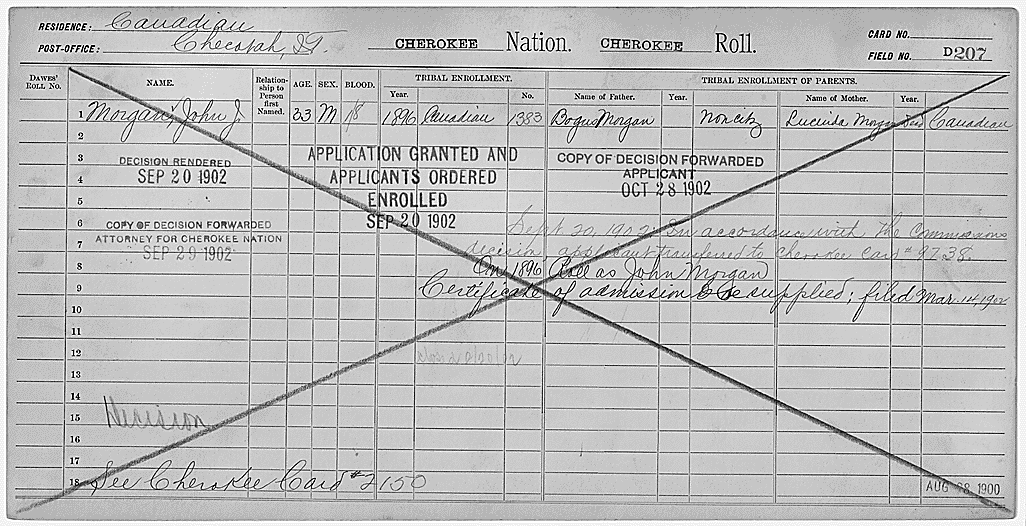 RESIDENCE: Canadian
POST-OFFICE: Checotah, I.T.
CHEROKEE Nation. CHEROKEE Roll.
CARD NO.
FIELD NO. D207
DAWES' ROLL NO. NAME. Relationship to Person first Named. AGE. SEX. BLOOD. TRIBAL ENROLLMENT. Year. No. TRIBAL ENROLLMENT OF PARENTS. Name of Father. Year. Name of Mother. Year.
1 Morgan, John J. 23 M 1/8 1896 Canadian 1383 Bogus Morgan Noncitz Lucinda Morgan Canadian
2
3
DECISION RENDERED
SEP 20 1902
APPLICATION GRANTED AND
APPLICANTS ORDERED
ENROLLED
SEP 20 1902
COPY OF DECISION FORWARDED
APPLICANT
OCT 28 1902
4
5
6
COPY OF DECISION FORWARDED
ATTORNEY FOR CHEROKEE NATION
SEP 29 1902
Sept 20, 1902: In accordance with the Commissions
7
decision applicant transferred to Cherokee Card # 9738.
8 On 1896 Roll as John Morgan
9 Certificate of admission to be supplied; filed Mar. 14, 1902
10
11
12
13
14
15 Decision
16
17
18 See Cherokee Card #2150
AUG 28 1900